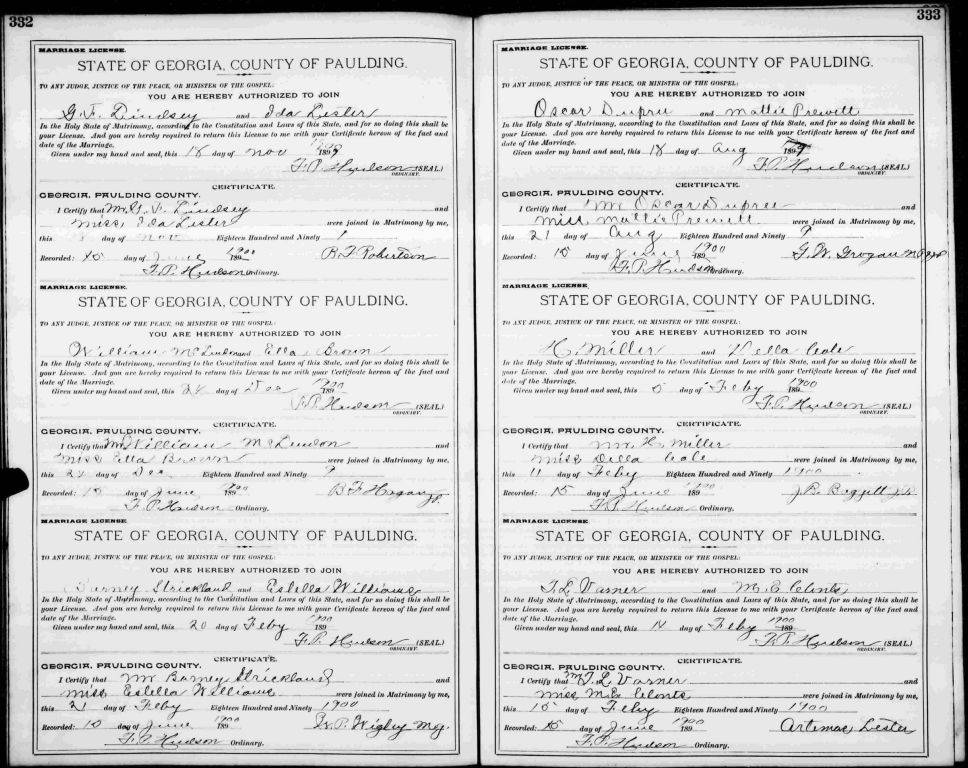 332
MARRIAGE LICENSE.
STATE OF GEORGIA, COUNTY OF PAULDING.
TO ANY JUDGE, JUSTICE OF THE PEACE, OR MINISTER OF THE GOSPEL:
YOU ARE HEREBY AUTHORIZED TO JOIN
G. F. Lindsey and Ida Lester
In the Holy State of Matrimony, according to the Constitution and Laws of this State, and for so doing this shall be
your License. And you are hereby required to return this License to me with your Certificate hereon of the fact and
date of the Marriage.
Given under my hand and seal, this 18 day of Nov 189
F. P. Hudson (SEAL)
ORDINARY.
CERTIFICATE.
GEORGIA, PAULDING COUNTY.
I Certify that Mr. G. F. Lindsey and
Miss Ida Lester were joined in Matrimony by me,
this day of Nov Eighteen Hundred and Ninety
Recorded: 15 day of June 1900 189
R. F. Robertson
F. P. Hudson Ordinary.
MARRIAGE LICENSE.
STATE OF GEORGIA, COUNTY OF PAULDING.
TO ANY JUDGE, JUSTICE OF THE PEACE, OR MINISTER OF THE GOSPEL:
YOU ARE HEREBY AUTHORIZED TO JOIN
William McLendon and Ella Brown
In the Holy State of Matrimony, according to the Constitution and Laws of this State, and for so doing this shall be
your License. And you are hereby required to return this License to me with your Certificate hereon of the fact and
date of the Marriage.
Given under my hand and seal, this 24 day of Dec 1900 189
F. P. Hudson (SEAL)
ORDINARY.
CERTIFICATE.
GEORGIA, PAULDING COUNTY.
I Certify that Mr William McLendon and
Miss Ella Brown were joined in Matrimony by me,
this 24 day of Dec Eighteen Hundred and Ninety 9
Recorded: 15 day of June 1900 189
B. F.
F. P. Hudson Ordinary.
MARRIAGE LICENSE.
STATE OF GEORGIA, COUNTY OF PAULDING.
TO ANY JUDGE, JUSTICE OF THE PEACE, OR MINISTER OF THE GOSPEL:
YOU ARE HEREBY AUTHORIZED TO JOIN
Barney Strickland and Estella Williams
In the Holy State of Matrimony, according to the Constitution and Laws of this State, and for so doing this shall be
your License. And you are hereby required to return this License to me with your Certificate hereon of the fact and
date of the Marriage.
Given under my hand and seal, this 20 day of Feby 1900 189
F. P. Hudson (SEAL)
ORDINARY.
CERTIFICATE.
GEORGIA, PAULDING COUNTY.
I Certify that Mr Barney Strickland and
Miss Estella Williams were joined in Matrimony by me,
this 21 day of Feby Eighteen Hundred and Ninety 1900
Recorded: 15 day of June 1900 189
W. P. Wigley M.G.
F. P. Hudson Ordinary.
333
MARRIAGE LICENSE.
STATE OF GEORGIA, COUNTY OF PAULDING.
TO ANY JUDGE, JUSTICE OF THE PEACE, OR MINISTER OF THE GOSPEL:
YOU ARE HEREBY AUTHORIZED TO JOIN
Oscar Dupree and Mattie Prewett
In the Holy State of Matrimony, according to the Constitution and Laws of this State, and for so doing this shall be
your License. And you are hereby required to return this License to me with your Certificate hereon of the fact and
date of the Marriage.
Given under my hand and seal, this 18 day of Aug 1899
F. P. Hudson (SEAL)
ORDINARY.
CERTIFICATE.
GEORGIA, PAULDING COUNTY.
I Certify that Mr Oscar Dupree and
Miss Mattie Prewett were joined in Matrimony by me,
this 21 day of Aug Eighteen Hundred and Ninety 9
Recorded: 15 day of June 1900 189
G. W. Grogan
F. P. Hudson Ordinary.
MARRIAGE LICENSE.
STATE OF GEORGIA, COUNTY OF PAULDING.
TO ANY JUDGE, JUSTICE OF THE PEACE, OR MINISTER OF THE GOSPEL:
YOU ARE HEREBY AUTHORIZED TO JOIN
H. Miller and Della Cole
In the Holy State of Matrimony, according to the Constitution and Laws of this State, and for so doing this shall be
your License. And you are hereby required to return this License to me with your Certificate hereon of the fact and
date of the Marriage.
Given under my hand and seal, this 5 day of Feby 1900 189
F. P. Hudson (SEAL)
ORDINARY.
CERTIFICATE.
GEORGIA, PAULDING COUNTY.
I Certify that Mr H. Miller and
Miss Della Cole were joined in Matrimony by me,
this 11 day of Feby Eighteen Hundred and Ninety 1900
Recorded: 15 day of June 1900 189
J. B. Baggett J.P.
F. P. Hudson Ordinary.
MARRIAGE LICENSE.
STATE OF GEORGIA, COUNTY OF PAULDING.
TO ANY JUDGE, JUSTICE OF THE PEACE, OR MINISTER OF THE GOSPEL:
YOU ARE HEREBY AUTHORIZED TO JOIN
T. L. Varner and M. E. Clonts
In the Holy State of Matrimony, according to the Constitution and Laws of this State, and for so doing this shall be
your License. And you are hereby required to return this License to me with your Certificate hereon of the fact and
date of the Marriage.
Given under my hand and seal, this 14 day of Feby 1900 189
F. P. Hudson (SEAL)
ORDINARY.
CERTIFICATE.
GEORGIA, PAULDING COUNTY.
I Certify that Mr T. L. Varner and
Miss M. E. Clonts were joined in Matrimony by me,
this 15 day of Feby Eighteen Hundred and Ninety 1900
Recorded: 15 day of June 1900 189
Artemas Lester
F. P. Hudson Ordinary.